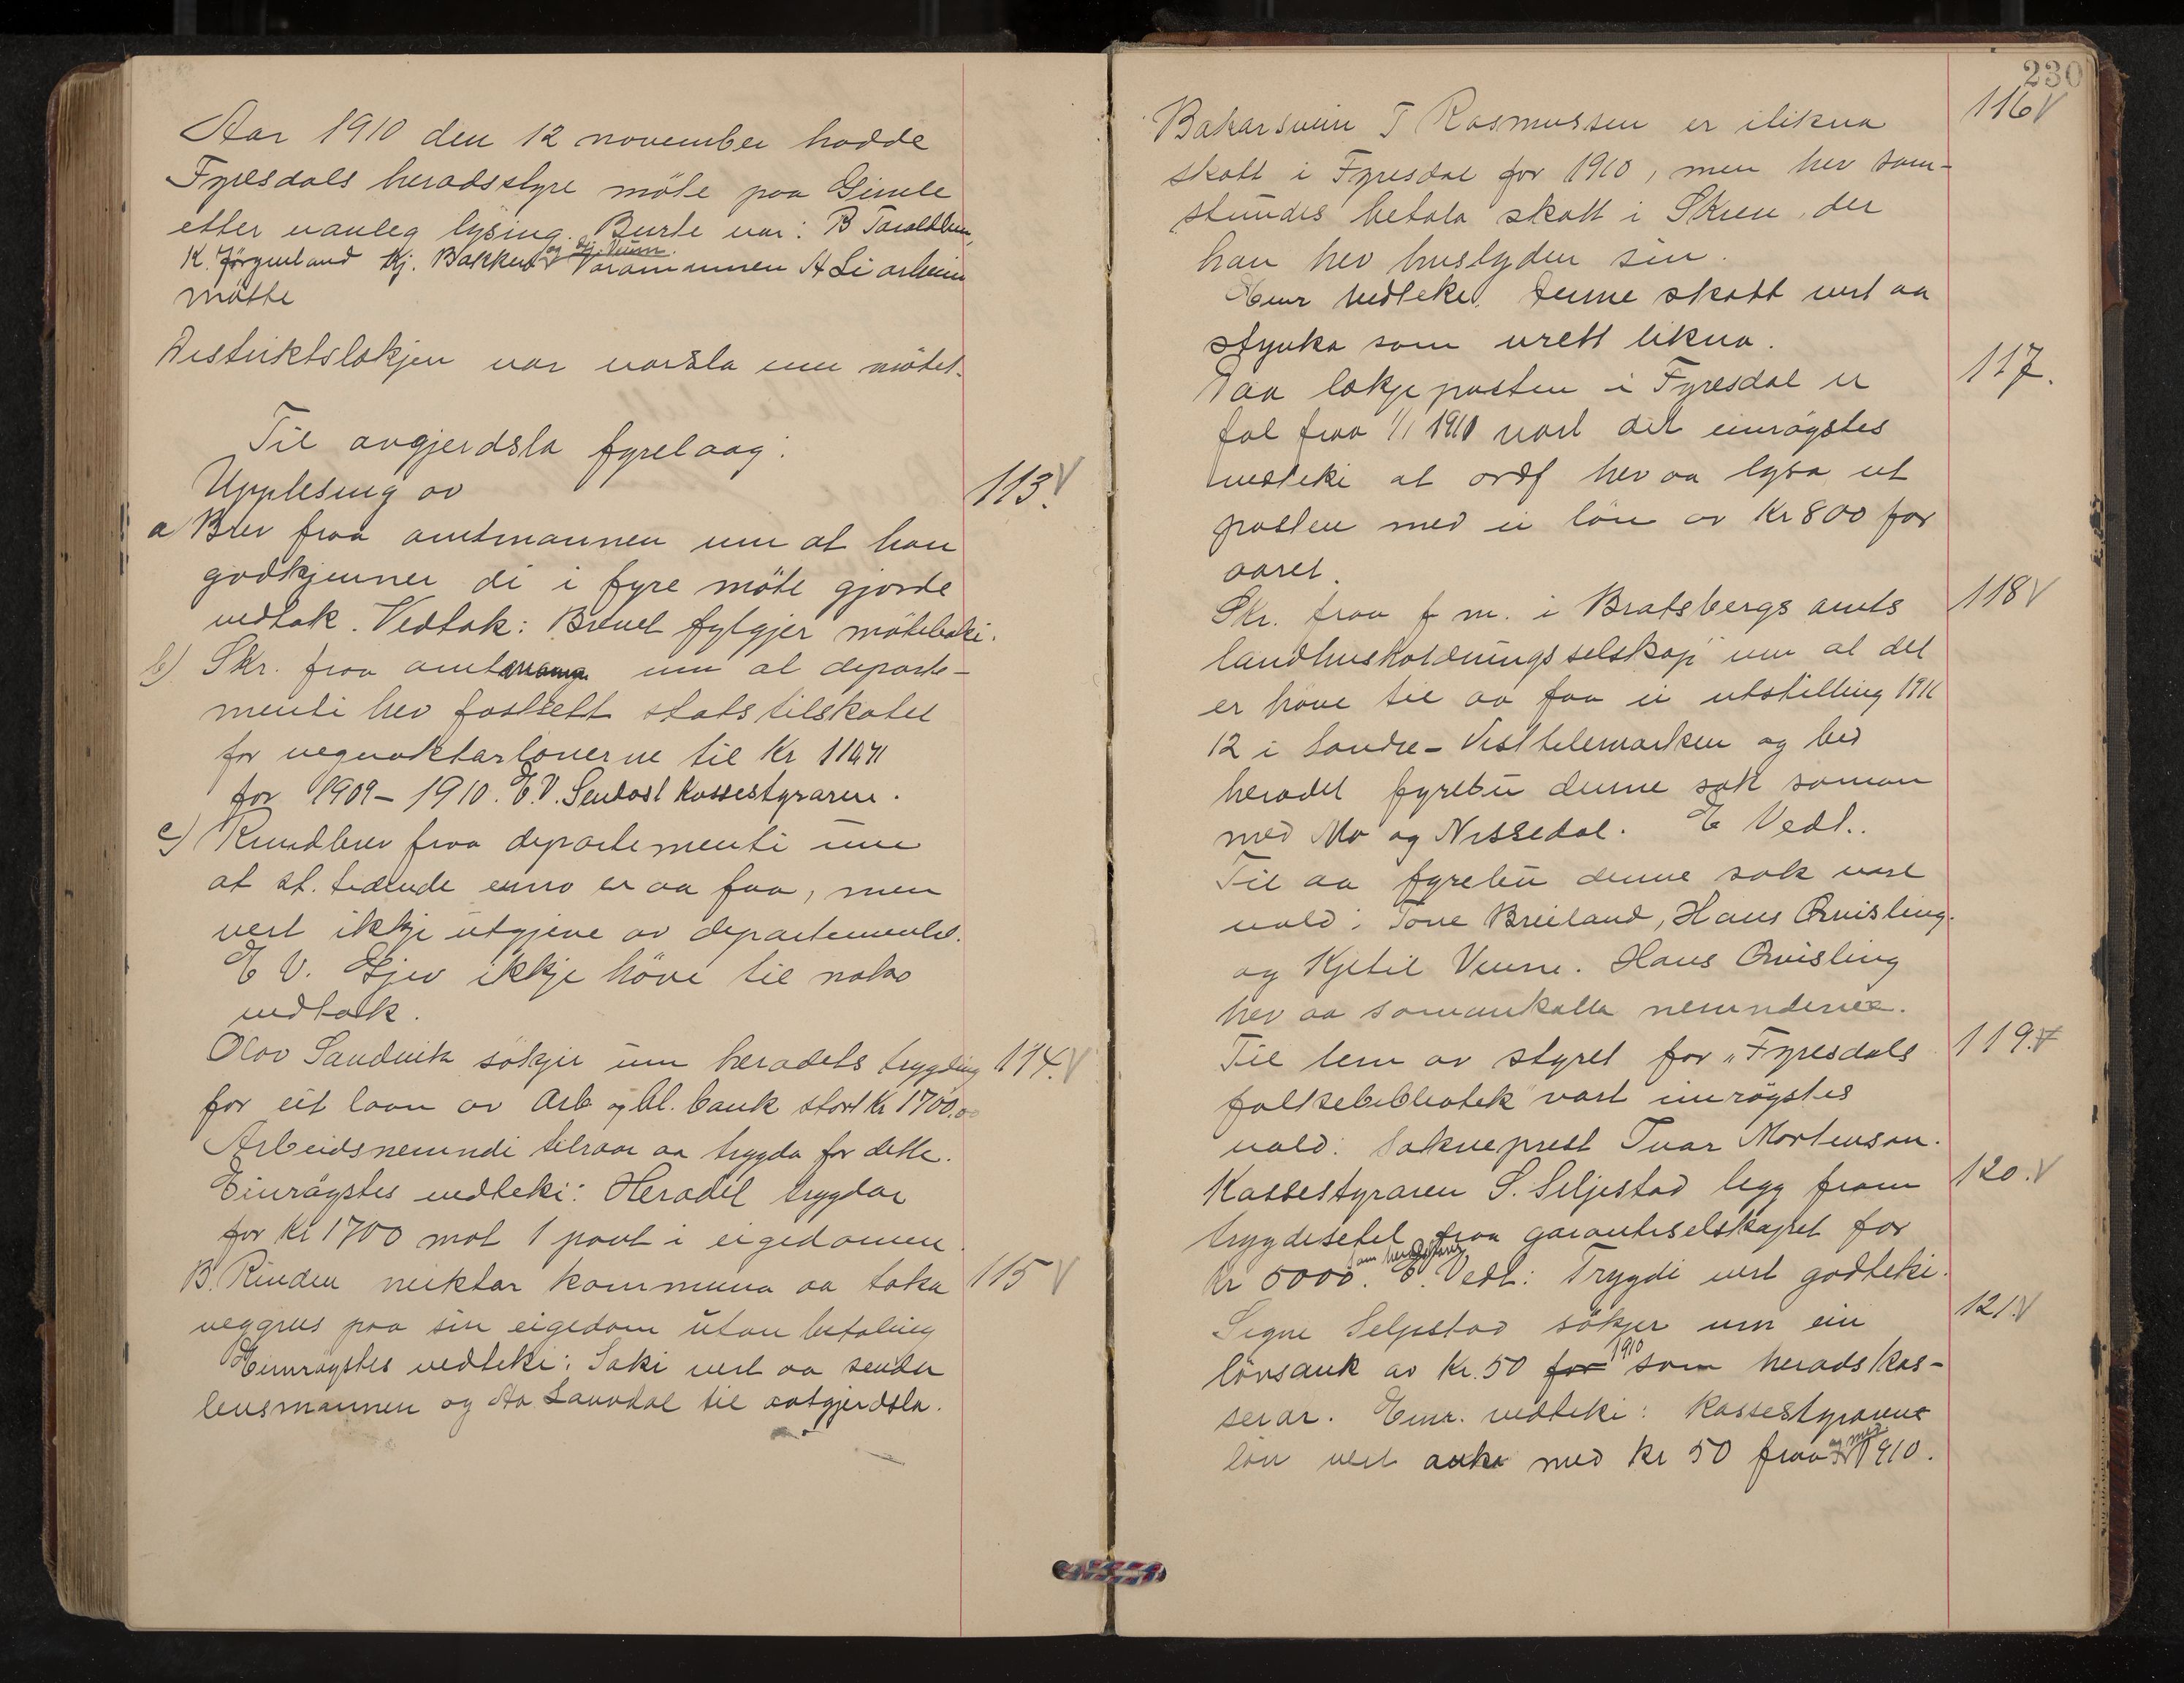 Aar 1910 den 12 november hadde
Fyresdals heradsstyre möte paa Gimle
etter vanleg lysing. Burte var: B Taraldlien,
K. Jörgenland Kj. Bakken og Kj. Veum. Varamannen A Li
mötte
Distriktslækjen var varsla um mötet.
Til avgjerdsla fyrelaag:
Upplesing av
113. V
a Brev fraa amtmannen um at han
godkjenner di i fyre möte gjorde
vedtak. Vedtak: Brevet fylgjer möteboki.
b) Skr. fraa um at departe-
menti hev fastsett statstilskotet
for vegvaktarlönerne til Kr
for 1909-1910. E.V. Sendast Kassestyraren.
c) Rundbrev fraa departementi um
at st. tidende enno er aa faa, men
vert ikkje utgjeve av departementet.
E V. Gjev ikkje höve til noko
vedtak.
Olav Sandvik sökjer um heradets trygding
114. V
for eit laan av Arb og bl. bank stort Kr 1700,00
Arbeidsnemndi tilraar aa trygda for dette.
Einröystes vedteki: Heradet trygdar
for Kr 1700 mot 1 pant i eigedomen
B. Rinden nektar kommuna aa taka
115 V
veggrus paa sin eigedom utan betaling
Einröystes vedteki: Saki vert aa senda
lensmannen og Aa Lauvdal til aatgjerdsla.
230
Bakarsvein T Rasmussen er ilikna
116 V
skatt i Fyresdal for 1910, men hev sam-
stundes betala skatt i Skien, der
han hev huslyden sin.
Einr vedteke. Denne skatt vert aa
stryka som urett likna.
Daa lækjeposten i Fyresdal er
117.
fal fraa 1/1 1911 vart det einröystes
vedteki at ordf hev aa lysa ut
posten med ei lön av Kr 800 for
aaret.
Skr. fraa f m. i Bratsbergs amts
118 V
landhusholdningsselskap um at det
er höve til aa faa ei utstilling 1911
12 i Søndre-Vesttelemarken og bed
heradet fyrebu denne sak saman
med Mo og Nissedal. E Vedt..
Til aa fyrebu denne sak vart
vald: Tone Breiland, Hans Qvisling.
og Kjetil Veum. Hans Qvisling
hev aa samankalla nemnderne.
Til lem av styret for "Fyresdals
119. V
folkebibliotek" vart einröystes
vald: Sokneprest Ivar Mortenson.
Kassestyraren S. Seljestad legg fram
120. V
trygdesetel fraa garantiselskapet for
Kr 5000. E. Vedt: Trygdi vert godteki.
Signe Seljestad sökjer um ein
121. V
lönsauk av Kr. 50 for 1910 som heradskas-
serar. Einr. vedteki: Kassestyrarens
lön vert auka med kr 50 fraa og med 1910.